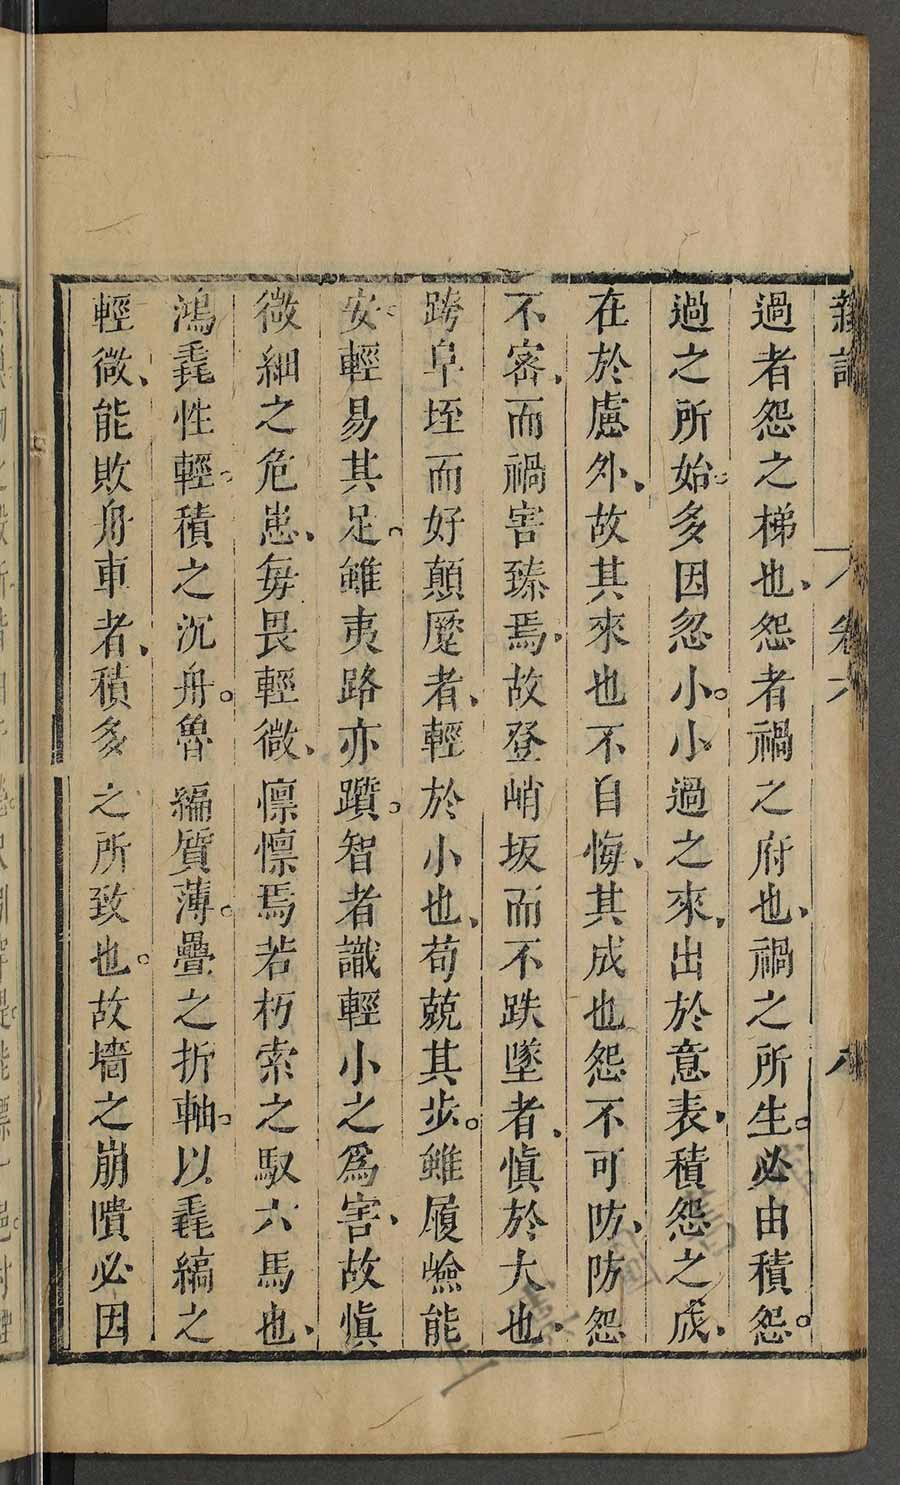 過者怨之梯也、怨者禍之府也、禍之所生。必由積怨。
過之所始。多因忽小。小過之來、出於意表、積怨之成、
在於慮外、故其來也不自悔、其成也怨不可防、防怨
不密、而禍害臻焉、故登峭坂而不跌墜者、慎於大也、
跨阜垤而好顛蹷者、輕於小也、苟兢其步。雖履嶮能
安。輕易其足。雖夷路亦躓。智者識輕小之爲害、故慎
微細之危患、每畏輕微、懍懍焉若朽索之馭六馬也、
鴻毳性輕。積之沉舟。魯縞質薄。疊之折軸。以毳縞之
輕微、能敗舟車者、積多之所致也。故墻之崩隤必因
卷六
八